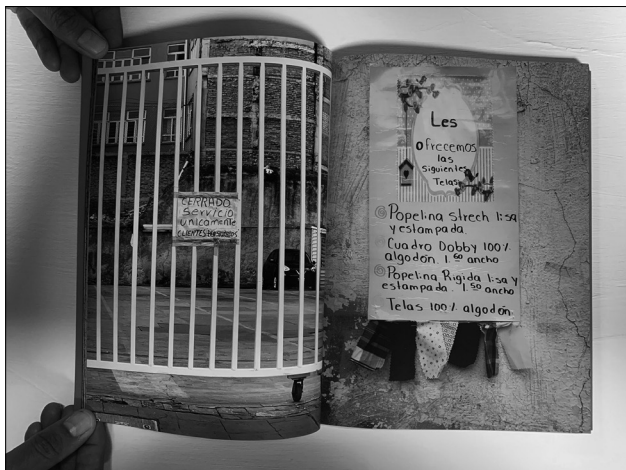 CERRADO
Servicio
unicamente
CLIENTES
Les
ofrecemos
las
siguientes
Telas
Popelina strech lisa
y estampada.
Cuadro Dobby 100%
algodón. 1.60 ancho
Popelina Rigida lisa y
estampada. 1.50 ancho
Telas 100% algodón.